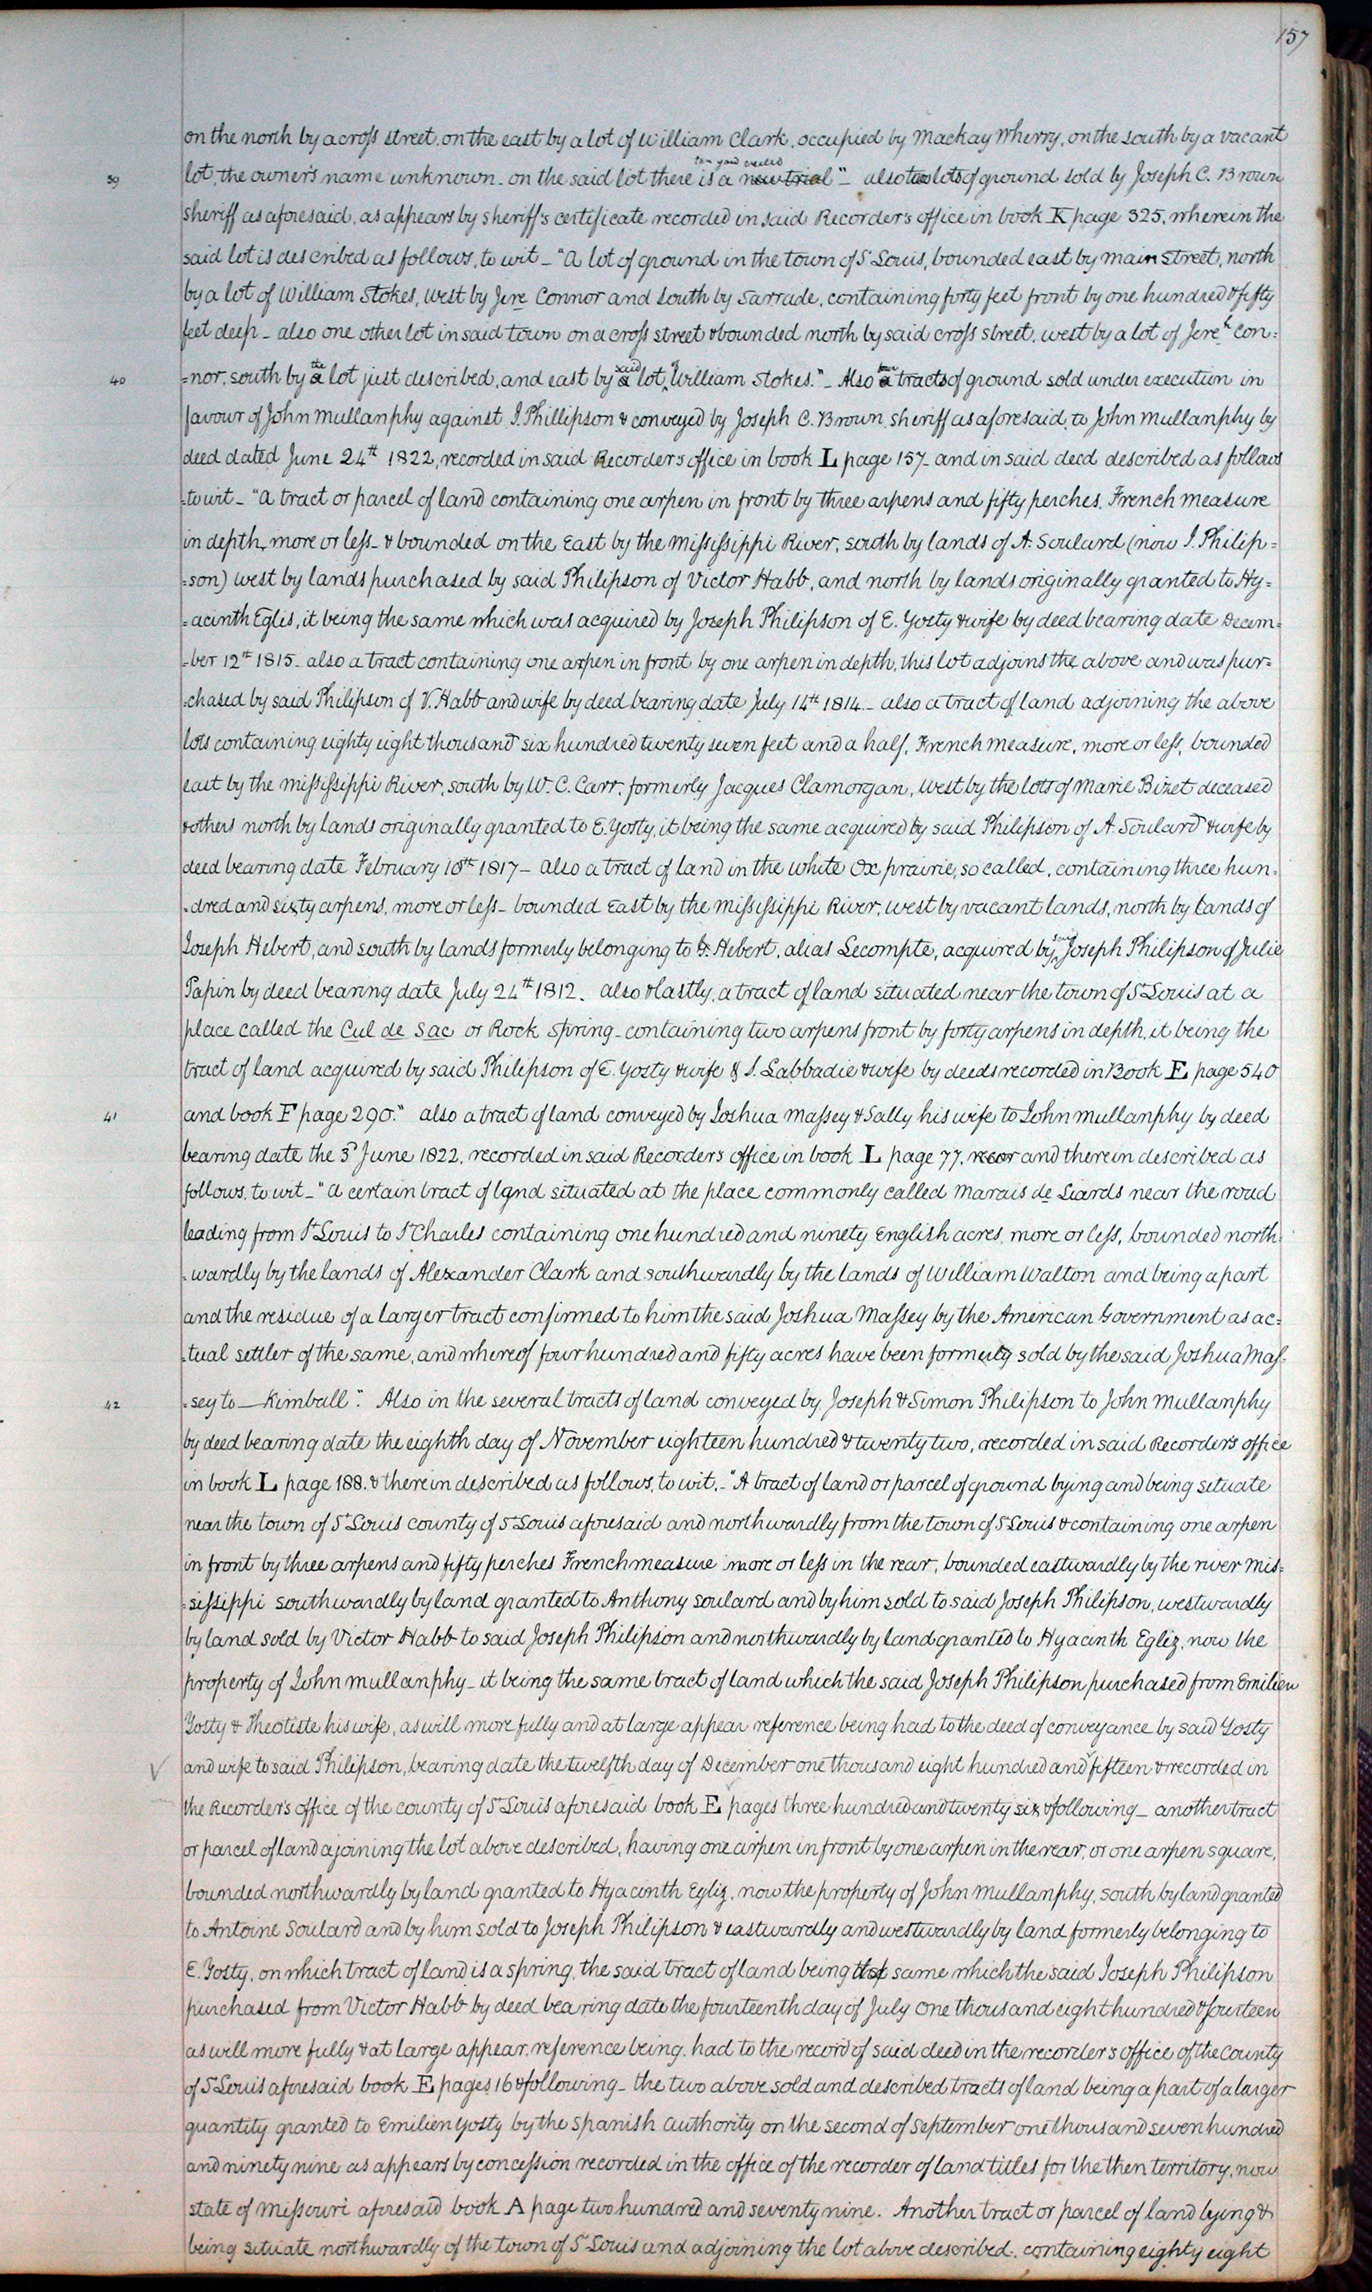 157
on the north by a cross street, on the east by a lot of William Clark, occupied by Mackay Wherry, on the south by a vacant
tan yard erected
39 lot, the owner's name unknown. on the said lot there is a new trial" – also two lots of ground sold by Joseph C. Brown
sheriff as aforesaid, as appears by sheriff's certificate recorded in said Recorder's office in book K page 325, wherein the
said lot is described as follows, to wit – "A lot of ground in the town of St Louis, bounded east by main street, north
by a lot of William Stokes, west by Jere Connor and south by Sarrade, containing forty feet front by one hundred & fifty
feet deep – also one other lot in said town on a cross street & bounded north by said cross street, west by a lot of Jereh Con=
the said
40 =nor, south by a lot just described, and east by a lot, William Stokes." – Also a tracts of ground sold under execution in
favour of John Mullanphy against J. Phillipson & conveyed by Joseph C. Brown sheriff as aforesaid, to John Mullanphy by
deed dated June 24th 1822, recorded in said Recorder's office in book L page 157 – and in said deed described as follows
to wit – "a tract or parcel of land containing one arpen in front by three arpens and fifty perches, French measure
in depth, more or less – & bounded on the East by the Mississippi River, south by lands of A. Soulard (now J. Philip=
=son) west by lands purchased by said Philipson of Victor Habb, and north by lands originally granted to Hy=
=acinth Eglis, it being the same which was acquired by Joseph Philipson of E. Yosty & wife by deed bearing date Decem=
=ber 12th 1815 – also a tract containing one arpen in front by one arpen in depth, this lot adjoins the above and was pur=
=chased by said Philipson of V. Habb and wife by deed bearing date July 14th 1814 – also a tract of land adjoining the above
lots containing eighty eight thousand six hundred twenty seven feet and a half, French measure, more or less, bounded
east by the Mississippi River, south by W. C. Carr, formerly Jacques Clamorgan, west by the lots of Marie Bizet deceased
& others north by lands originally granted to E. Yosty, it being the same acquired by said Philipson of A. Soulard & wife by
deed bearing date February 10th 1817 – also a tract of land in the white Ox prairie, so called, containing three hun=
=dred and sixty arpens, more or less – bounded East by the Mississippi River, west by vacant lands, north by lands of
Joseph Hebert, and south by lands formerly belonging to F. Hebert, alias Lecompte, acquired by said Joseph Philipson of Julie
Papin by deed bearing date July 24th 1812. also & lastly, a tract of land situated near the town of St Louis at a
place called the Cul de Sac or Rock Spring – containing two arpens front by forty arpens in depth, it being the
tract of land acquired by said Philipson of E. Yosty & wife & S. Labbadie & wife by deeds recorded in Book E page 540
41 and book F page 290." also a tract of land conveyed by Joshua Massey & Sally his wife to John Mullanphy by deed
bearing date the 3d June 1822, recorded in said Recorder's office in book L page 77, recor and therein described as
follows, to wit – "a certain tract of land situated at the place commonly called Marais de Liards near the road
leading from St Louis to St Charles containing one hundred and ninety English acres, more or less, bounded north=
=wardly by the lands of Alexander Clark and southwardly by the lands of William Walton and being a part
and the residue of a larger tract confirmed to him the said Joshua Massey by the American Government as ac=
=tual settler of the same, and whereof four hundred and fifty acres have been formerly sold by the said Joshua Mas=
42 =sey to — Kimball". Also in the several tracts of land conveyed by Joseph & Simon Philipson to John Mullanphy
by deed bearing date the eighth day of November eighteen hundred & twenty two, recorded in said Recorder's office
in book L page 188. & therein described as follows, to wit. – "A tract of land or parcel of ground lying and being situate
near the town of St Louis county of St Louis aforesaid and northwardly from the town of St Louis & containing one arpen
in front by three arpens and fifty perches French measure more or less in the rear, bounded eastwardly by the river Mis=
=sissippi southwardly by land granted to Anthony Soulard and by him sold to said Joseph Philipson, westwardly
by land sold by Victor Habb to said Joseph Philipson and northwardly by land granted to Hyacinth Egliz, now the
property of John Mullanphy – it being the same tract of land which the said Joseph Philipson purchased from Emilien
Yosty & Theotiste his wife, as will more fully and at large appear reference being had to the deed of conveyance by said Yosty
and wife to said Philipson, bearing date the twelfth day of December one thousand eight hundred and fifteen & recorded in
the Recorder's office of the county of St Louis aforesaid book E pages three hundred and twenty six & following – another tract
or parcel of land ajoining the lot above described, having one arpen in front by one arpen in the rear, or one arpen square,
bounded northwardly by land granted to Hyacinth Egliz, now the property of John Mullanphy, south by land granted
to Antoine Soulard and by him sold to Joseph Philipson & eastwardly and westwardly by land formerly belonging to
E. Yosty, on which tract of land is a spring, the said tract of land being the same which the said Joseph Philipson
purchased from Victor Habb by deed bearing date the fourteenth day of July one thousand eight hundred & fourteen
as will more fully & at large appear, reference being had to the record of said deed in the recorder's office of the County
of St Louis aforesaid book E pages 16 & following – the two above sold and described tracts of land being a part of a larger
quantity granted to Emilien Yosty by the Spanish Authority on the second of September one thousand seven hundred
and ninety nine as appears by concession recorded in the office of the recorder of land titles for the then territory, now
state of Missouri aforesaid book A page two hundred and seventy nine. Another tract or parcel of land lying &
being situate northwardly of the town of St Louis and adjoining the lot above described, containing eighty eight